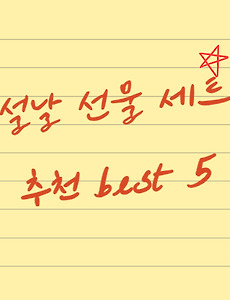 설날 선물 세트
추천 best 5